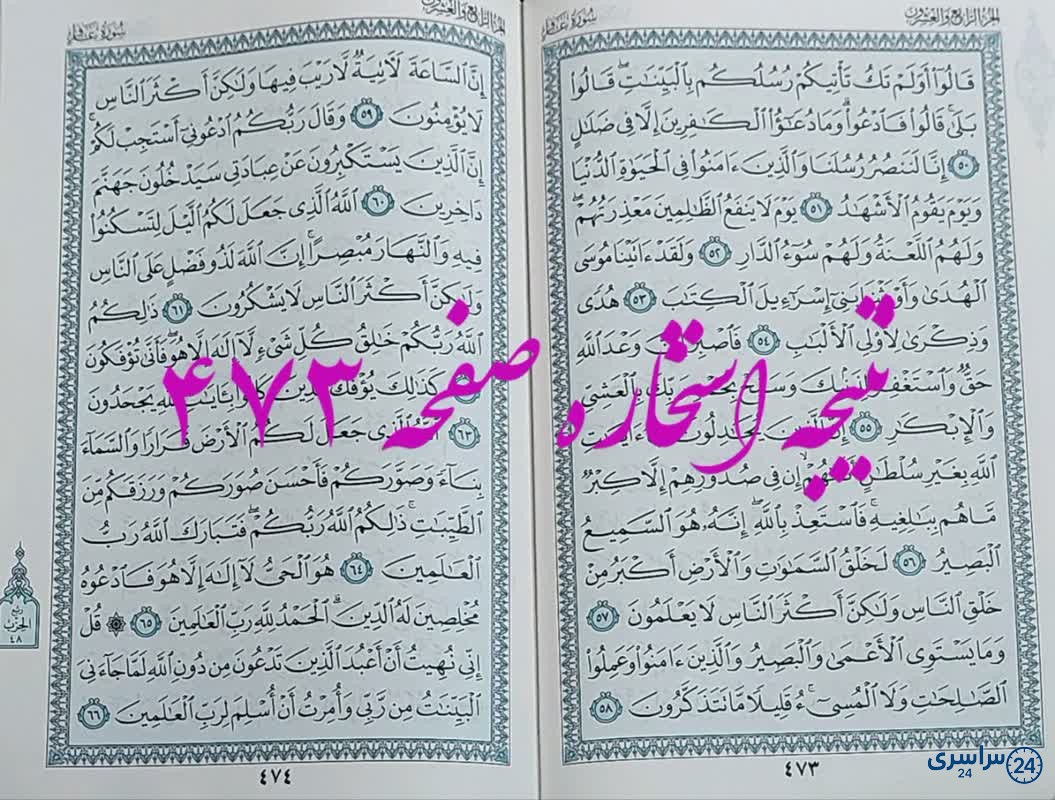 الجزء الرابع والعشرون
سورة غافر
قَالُوٓا۟ أَوَلَمْ تَكُ تَأْتِيكُمْ رُسُلُكُم بِٱلْبَيِّنَٰتِ ۖ قَالُوا۟
بَلَىٰ ۚ قَالُوا۟ فَٱدْعُوا۟ ۗ وَمَا دُعَٰٓؤُا۟ ٱلْكَٰفِرِينَ إِلَّا فِى ضَلَٰلٍ
٥٠ إِنَّا لَنَنصُرُ رُسُلَنَا وَٱلَّذِينَ ءَامَنُوا۟ فِى ٱلْحَيَوٰةِ ٱلدُّنْيَا
وَيَوْمَ يَقُومُ ٱلْأَشْهَٰدُ ٥١ يَوْمَ لَا يَنفَعُ ٱلظَّٰلِمِينَ مَعْذِرَتُهُمْ ۖ
وَلَهُمُ ٱللَّعْنَةُ وَلَهُمْ سُوٓءُ ٱلدَّارِ ٥٢ وَلَقَدْ ءَاتَيْنَا مُوسَى
ٱلْهُدَىٰ وَأَوْرَثْنَا بَنِىٓ إِسْرَٰٓءِيلَ ٱلْكِتَٰبَ ٥٣ هُدًى
وَذِكْرَىٰ لِأُو۟لِى ٱلْأَلْبَٰبِ ٥٤ فَٱصْبِرْ إِنَّ وَعْدَ ٱللَّهِ
حَقٌّ وَٱسْتَغْفِرْ لِذَنۢبِكَ وَسَبِّحْ بِحَمْدِ رَبِّكَ بِٱلْعَشِىِّ
وَٱلْإِبْكَٰرِ ٥٥ إِنَّ ٱلَّذِينَ يُجَٰدِلُونَ فِىٓ ءَايَٰتِ
ٱللَّهِ بِغَيْرِ سُلْطَٰنٍ أَتَىٰهُمْ ۙ إِن فِى صُدُورِهِمْ إِلَّا كِبْرٌ
مَّا هُم بِبَٰلِغِيهِ ۚ فَٱسْتَعِذْ بِٱللَّهِ ۖ إِنَّهُۥ هُوَ ٱلسَّمِيعُ
ٱلْبَصِيرُ ٥٦ لَخَلْقُ ٱلسَّمَٰوَٰتِ وَٱلْأَرْضِ أَكْبَرُ مِنْ
خَلْقِ ٱلنَّاسِ وَلَٰكِنَّ أَكْثَرَ ٱلنَّاسِ لَا يَعْلَمُونَ ٥٧
وَمَا يَسْتَوِى ٱلْأَعْمَىٰ وَٱلْبَصِيرُ وَٱلَّذِينَ ءَامَنُوا۟ وَعَمِلُوا۟
ٱلصَّٰلِحَٰتِ وَلَا ٱلْمُسِىٓءُ ۚ قَلِيلًا مَّا تَتَذَكَّرُونَ ٥٨
٤٧٣
الجزء الرابع والعشرون
سورة غافر
إِنَّ ٱلسَّاعَةَ لَءَاتِيَةٌ لَّا رَيْبَ فِيهَا وَلَٰكِنَّ أَكْثَرَ ٱلنَّاسِ
لَا يُؤْمِنُونَ ٥٩ وَقَالَ رَبُّكُمُ ٱدْعُونِىٓ أَسْتَجِبْ لَكُمْ ۚ
إِنَّ ٱلَّذِينَ يَسْتَكْبِرُونَ عَنْ عِبَادَتِى سَيَدْخُلُونَ جَهَنَّمَ
دَاخِرِينَ ٦٠ ٱللَّهُ ٱلَّذِى جَعَلَ لَكُمُ ٱلَّيْلَ لِتَسْكُنُوا۟
فِيهِ وَٱلنَّهَارَ مُبْصِرًا ۚ إِنَّ ٱللَّهَ لَذُو فَضْلٍ عَلَى ٱلنَّاسِ
وَلَٰكِنَّ أَكْثَرَ ٱلنَّاسِ لَا يَشْكُرُونَ ٦١ ذَٰلِكُمُ
ٱللَّهُ رَبُّكُمْ خَٰلِقُ كُلِّ شَىْءٍ لَّآ إِلَٰهَ إِلَّا هُوَ ۖ فَأَنَّىٰ تُؤْفَكُونَ
كَذَٰلِكَ يُؤْفَكُ ٱلَّذِينَ كَانُوا۟ بِـَٔايَٰتِ ٱللَّهِ يَجْحَدُونَ
٦٣ ٱللَّهُ ٱلَّذِى جَعَلَ لَكُمُ ٱلْأَرْضَ قَرَارًا وَٱلسَّمَآءَ
بِنَآءً وَصَوَّرَكُمْ فَأَحْسَنَ صُوَرَكُمْ وَرَزَقَكُم مِّنَ
ٱلطَّيِّبَٰتِ ۚ ذَٰلِكُمُ ٱللَّهُ رَبُّكُمْ ۖ فَتَبَارَكَ ٱللَّهُ رَبُّ
ٱلْعَٰلَمِينَ ٦٤ هُوَ ٱلْحَىُّ لَآ إِلَٰهَ إِلَّا هُوَ فَٱدْعُوهُ
مُخْلِصِينَ لَهُ ٱلدِّينَ ۗ ٱلْحَمْدُ لِلَّهِ رَبِّ ٱلْعَٰلَمِينَ ٦٥ ۞ قُلْ
إِنِّى نُهِيتُ أَنْ أَعْبُدَ ٱلَّذِينَ تَدْعُونَ مِن دُونِ ٱللَّهِ لَمَّا جَآءَنِىَ
ٱلْبَيِّنَٰتُ مِن رَّبِّى وَأُمِرْتُ أَنْ أُسْلِمَ لِرَبِّ ٱلْعَٰلَمِينَ ٦٦
ربع
الحزب
٤٨
٤٧٤
نتیجه استخاره صفحه ۴۷۳
سراسری 24
24